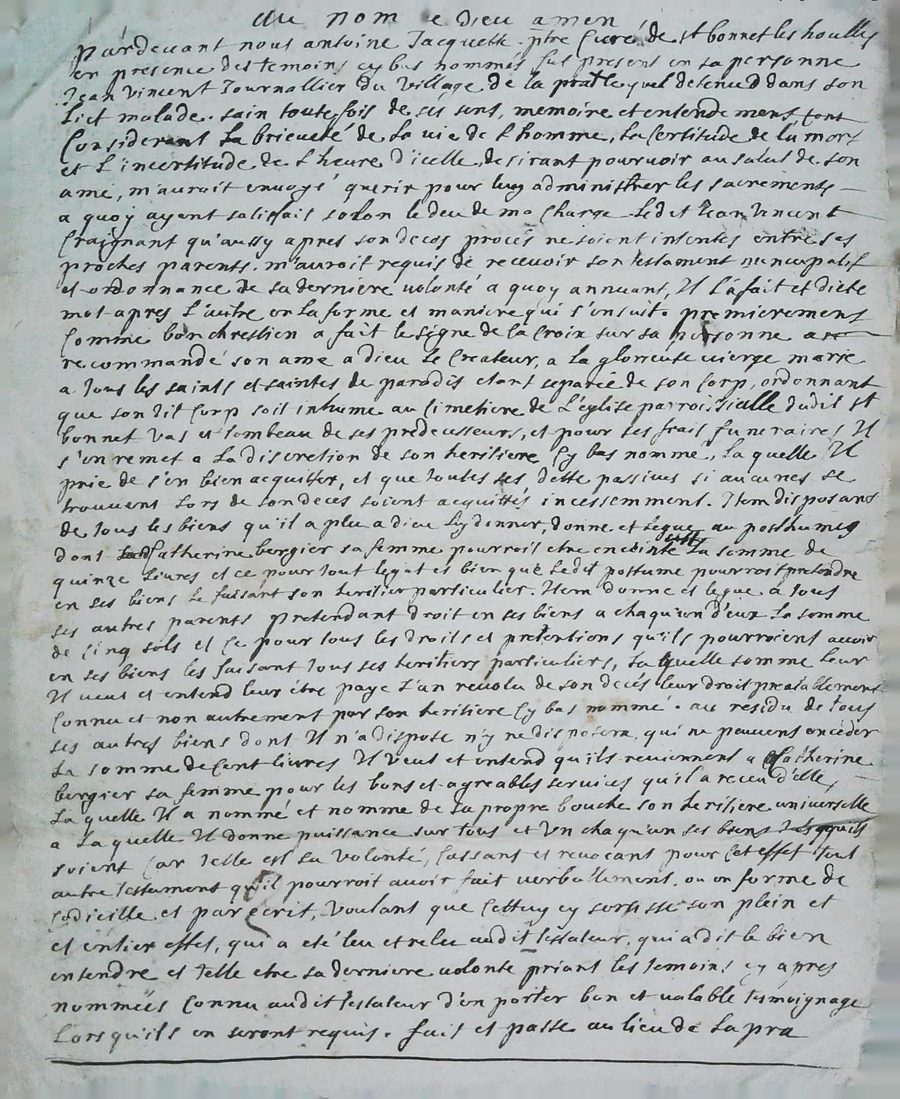 au nom de dieu amen
pardevant nous antoine Jacquette ptre Curé de st bonnet les houlles
en presence des temoins cy bas nommés fut present en sa personne
Jean vincent Journallier du village de la pratte quel detenu dans son
Lict malade. sain toutefois de ses sens, memoire et entendement, tout
Considerant La brieueté de La vie de L homme, La Certitude de la mort
et L'incertitude de L heure d'icelle desirant pourvoir au salut de son
ame, m'auroit envoyé querir pour luy administrer les sacrements
a quoy ayant satisfait selon le deu de ma Charge Ledit Jean Vincent
Craignant qu'aussy apres son deces procès ne soient intentes entre ses
proches parents. m'auroit requis de recevoir son testament nuncupatif
et ordonnance de sa derniere volonté a quoy annuant, Il L'a fait et dicté
mot apres L'autre en la forme et maniere qui s'ensuit. premierement
Comme bon chrestien a fait le signe de la Croix sur sa personne a
recommandé son ame a dieu Le Createur, a la glorieuse vierge marie
a Tous les saints et saintes de paradis etant separée de son Corp, ordonnant
que son dit Corp soit inhumé au Cimetiere de L'eglise parroissialle dudit st
bonnet vas et tombeau de ses predecesseurs, et pour ses frais funeraires Il
s'en remet a La discretion de son heritiere Cy bas nommé, La quelle Il
prie de s'en bien acquitter, et que toutes ses dette passives si aucunes se
trouvent Lors de son deces soient acquittés incessemment. Item disposant
de tous les biens qu'il a plu a dieu Luy donner, donne et Legue au posthume
dont Catherine bergier sa femme pourroit etre enceinte La somme de
quinze Livres et ce pour tout legat et bien que Ledit postume pourroit pretendre
en ses biens le faisant son heritier particulier. Item donne et legue a tous
ses autres parents pretendant droit en ses biens a chaqu'un d'eux La somme
de Cinq sols et Ce pour tous les droits et pretentions qu'ils pourroient avoir
en ses biens les faisant tous ses heritiers particuliers, La quelle somme leur
Il veut et entend leur être payé L'an revolu de son decés leur droit prealablement
Connu et non autrement par son heritiere Cy bas nommé. au residu de tous
ses autres biens dont Il n'a disposé n'y ne disposera, qui ne peuvent excéder
La somme de Cent livres Il Veut et entend qu'ils reviennent a Catherine
bergier sa femme pour les bons et agreables services qu'il a receu d'elle,
La quelle Il a nommé et nomme de sa propre bouche son heritiere universelle
a La quelle Il donne puissance sur tous et Un chaqu'un ses biens
soient Car Telle est sa volonté, Cassant et revocant pour Cet effet tout
autre Testament qu'il pourroit avoir fait verballement, ou en forme de
Codicille et par écrit, voulant que Cettuy cy sortisse son plein et
et entier effet, qui a eté leu et releu audit testateur, qui a dit le bien
entendre et telle etre sa derniere volonte priant les temoins cy apres
nommées Connu audit testateur d'en porter bon et valable temoignage
Lorsqu'ils en seront requis. fait et passé au lieu de La pra